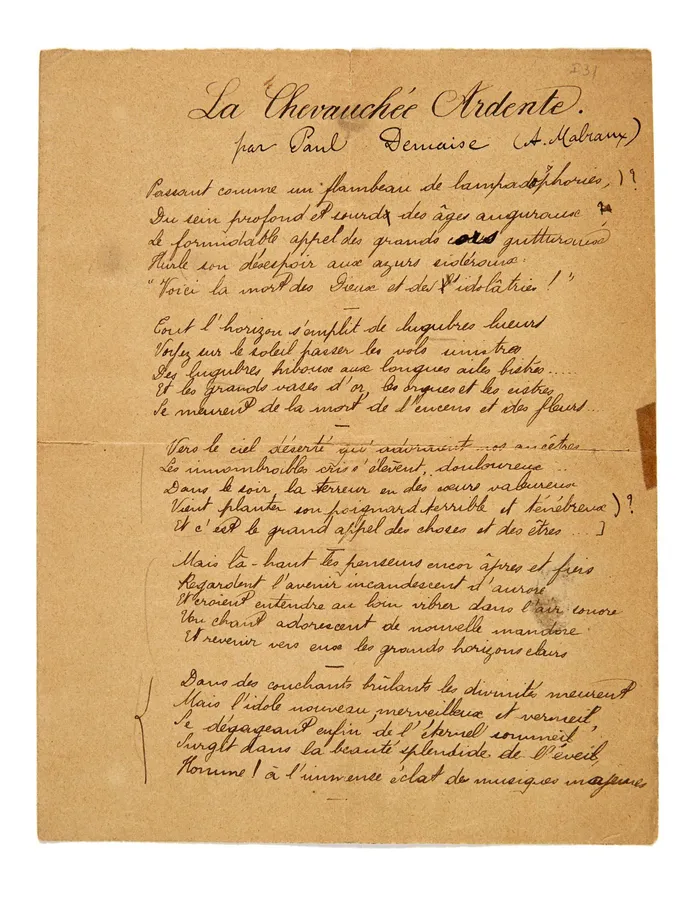 I 31
La Chevauchée Ardente.
par Paul Demaise (A. Malraux)
Passant comme un flambeau de lampadophories, ) ?
Du sein profond et sourd des âges auguraux ?
Le formidable appel des grands cors gutturaux
Hurle son désespoir aux azurs sidéraux:
"Voici la mort des Dieux et des idolâtries ! "
Tout l'horizon s'emplit de lugubres lueurs
Voyez sur le soleil passer les vols sinistres
Des lugubres hiboux aux longues ailes bistres.....
Et les grands vases d'or, les orgues et les cistres
Se meurent de la mort de l'encens et des fleurs...
Vers le ciel déserté qui nos ancêtres
Les innombrables cris s'élèvent, douloureux..
Dans le soir la terreur en des cœurs valeureux
Vient planter son poignard terrible et ténébreux ) ?
Et c'est le grand appel des choses et des êtres .... ]
Mais là-haut les penseurs encor âpres et fiers
Regardent l'avenir incandescent d'aurore
Et croient entendre au loin vibrer dans l'air sonore
Un chant adorescent de nouvelle mandore
Et revenir vers eux les grands horizons clairs
Dans des couchants brûlants les divinités meurent
Mais l'idole nouveau, merveilleux et vermeil,
Se dégageant enfin de l'éternel sommeil
Surgit dans la beauté splendide de l'éveil,
Homme ! à l'immense éclat de musiques majeures